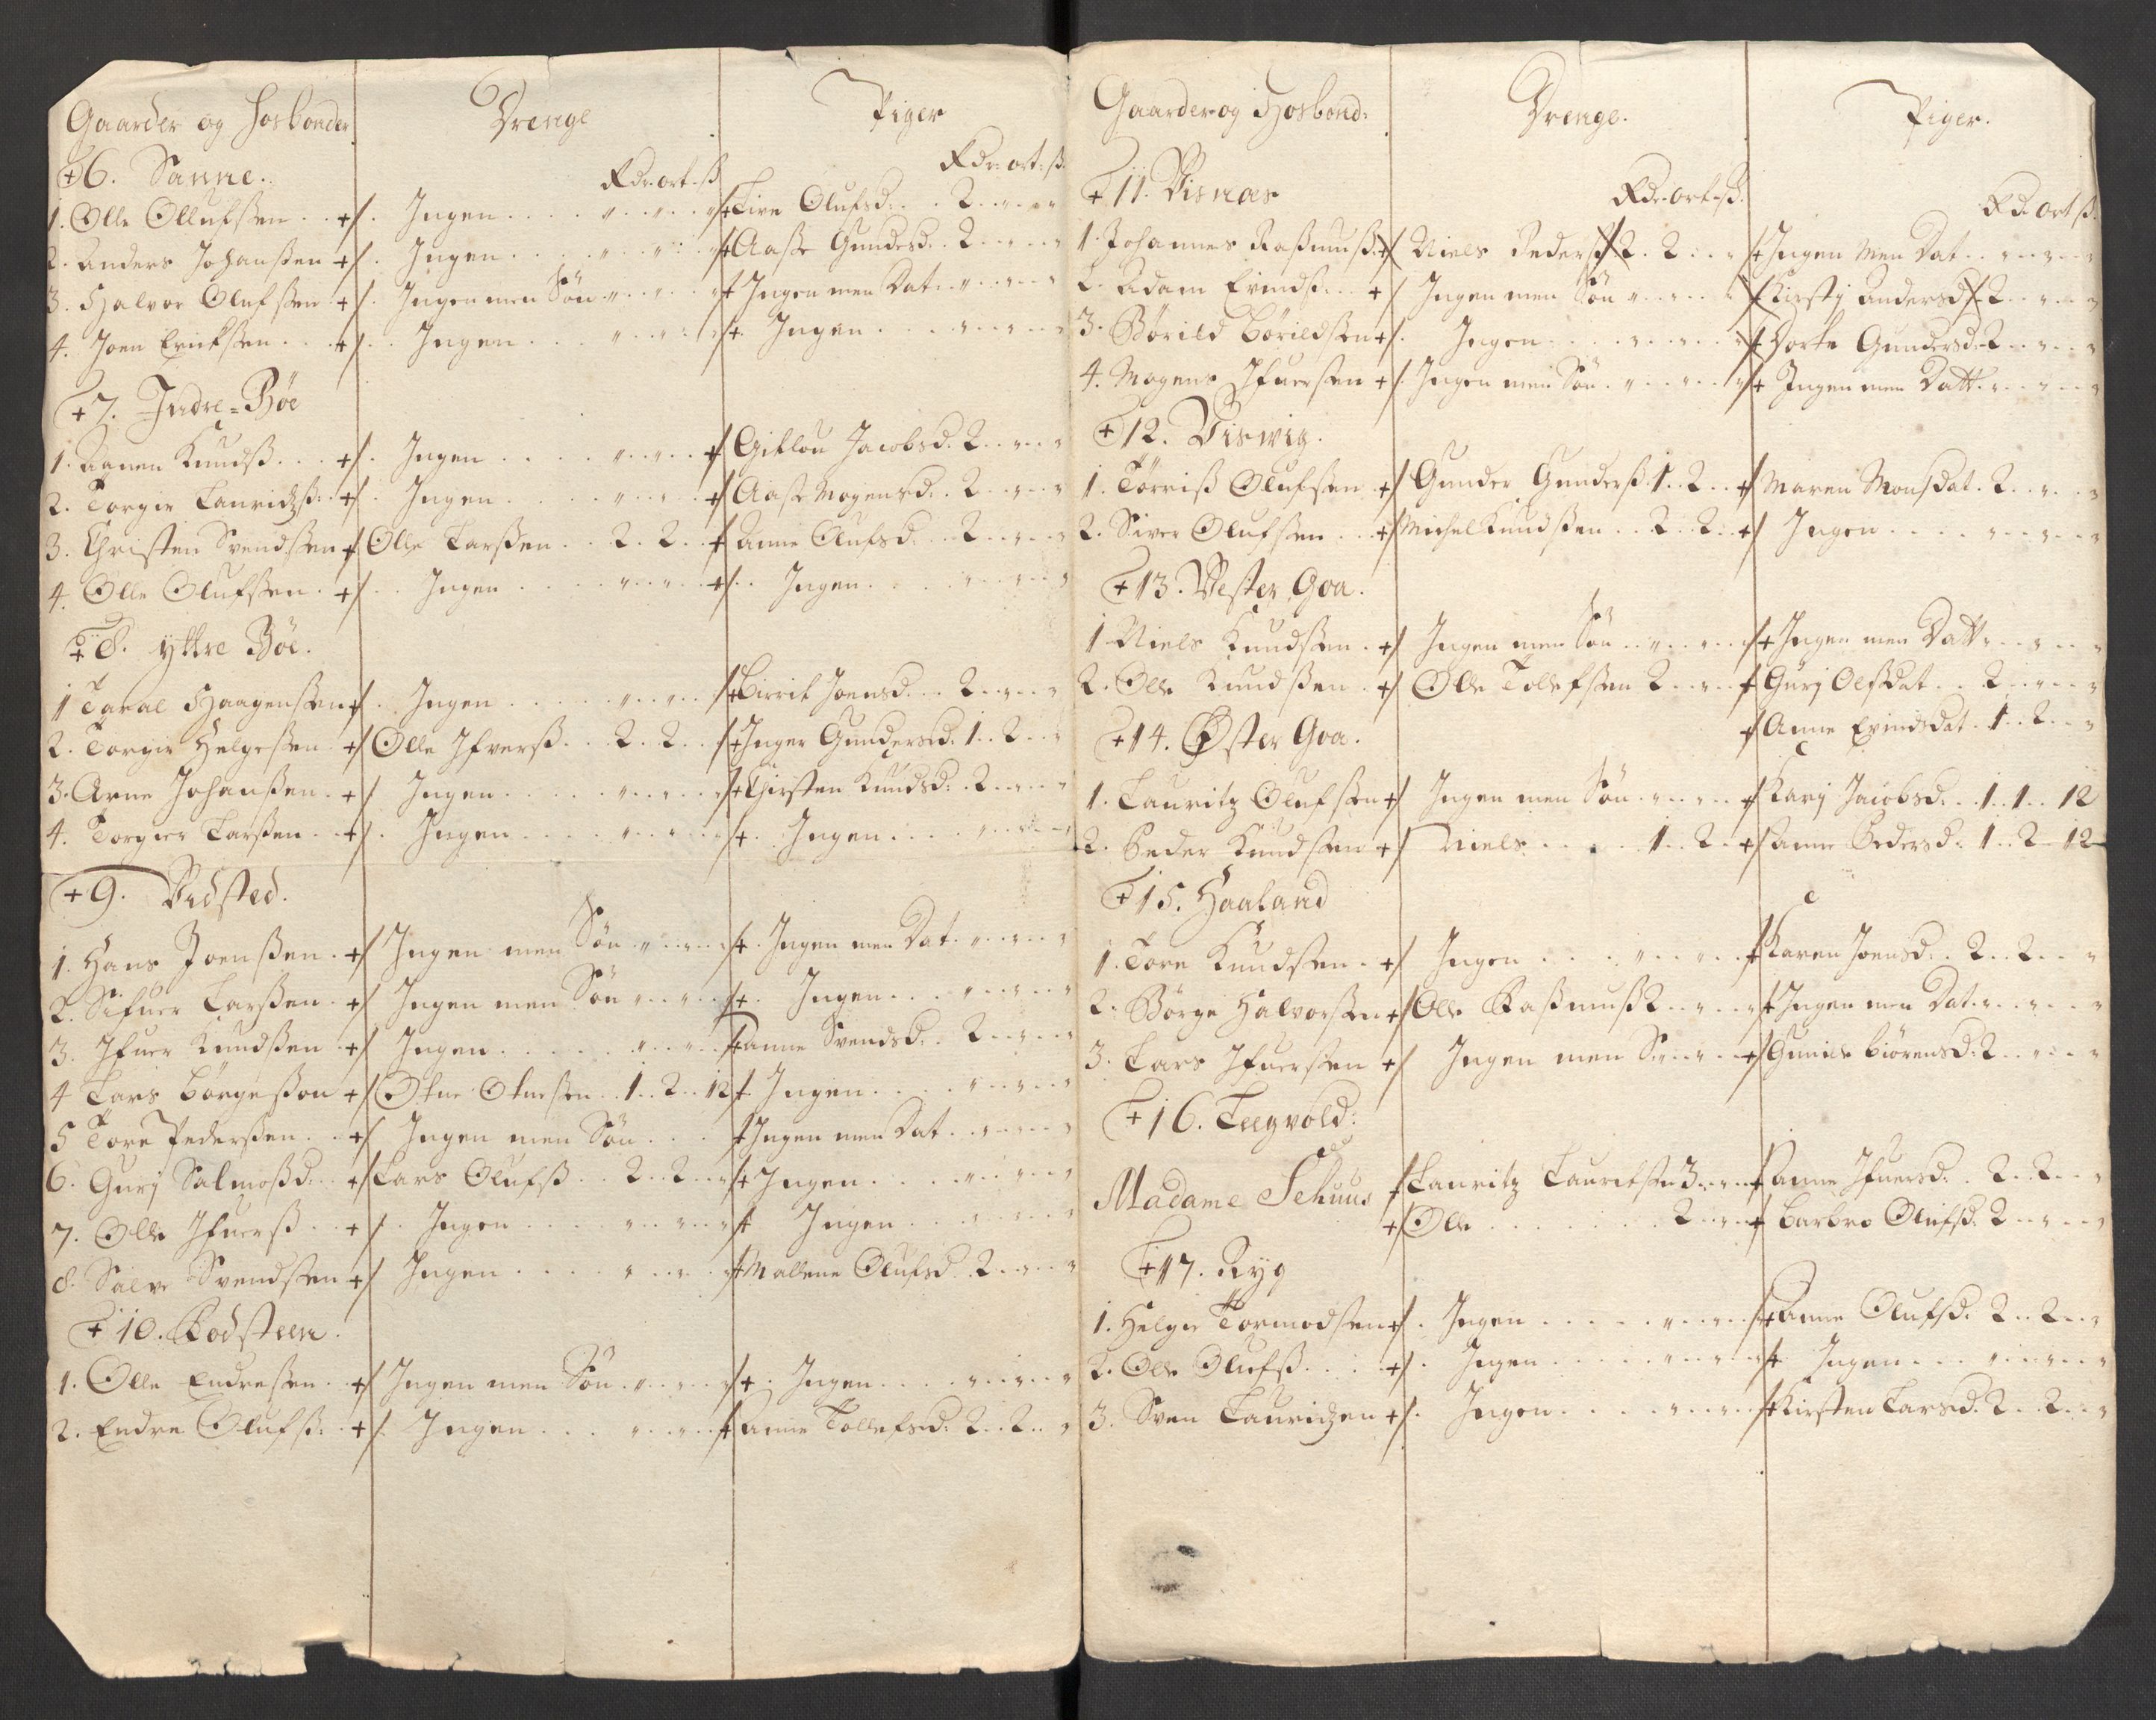 Gaarder og Hosbonder Drenge Piger
+6. Sanne. Rdr. ort. ß Rdr. ort. ß.
1. Olle Ollufsen . . + Ingen . . . . " . . " . . " + Live Olufsd. . . 2 . . " . . "
2. Anders Johansen + Ingen . . . . " . . " . . " + Aasse Gundersd. . 2 . . " . . "
3. Halvor Olufsen . + Ingen men Søn " . . " . . " + Ingen men Dat . . " . . " . . "
4. Joen Ericksen . . + Ingen . . . " . . " . . " + Ingen . . . . " . . " . . "
+7. Indre-Bøe
1. Aanen Knudsß . . . + Ingen . . . . " . . " . . + Gitlou Jacobsd. 2 . . " . . "
2. Torgir Lauridsß. . + Ingen . . . . " . . " . . + Aase Mogensd. . 2 . . " . . "
3. Christen Svendsen + Olle Larsen . . 2 . 2 . . + Anne Olufsd. . . 2 . . " . . "
4. Olle Olufsen . + Ingen . . . . " . . " . . + Ingen . . . . " . . " . . "
+8. yttre Bøe.
1 Taral Haagensen + Ingen . . . . " . . " . . + Birrit Joensd. . . 2 . . " . . "
2. Torgir Helgesen . + Olle Ifversß . . 2 . 2 . . + Inger Gundersd. 1 . . 2 . . "
3. Arne Johansen . + Ingen . . . . " . . " . . + Chirsten Knudsd. . 2 . . " . . "
4. Torgier Larsen . . + Ingen . . . . " . . " . . + Ingen . . . . " . . " . . "
+9. Vidsted.
1. Hans Joensen . + Ingen men Søn " . . " . . + Ingen men Dat . " . . " . . "
2. Sifuer Larsen . + Ingen men Søn " . . " . . + Ingen . . . " . . " . . "
3. Ifuer Knudsen . + Ingen . . . . " . . " . . + anne Svendsd. . 2 . . " . . "
4 Lars Børgeson + Otne Otnesen . . 1 . . 2 . . 12 + Ingen . . . . " . . " . . "
5 Tore Pedersen . . + Ingen men Søn . . . + Ingen men Dat . . " . . " . . "
6. Gurj Salmosd. . + Lars Olufsß . . 2 . . 2 . . " + Ingen . . . . " . . " . . "
7. Olle Ifuersß . . + Ingen . . . . " . . " . . " + Ingen . . . " . . " . . "
8. Salve Svendsen + Ingen . . . . " . . " . . + Mallene Olufsd. . 2 . . " . . "
+10. Rodsteen.
1. Olle Endresen . . + Ingen men Søn . " . . " . . " + Ingen . . . . " . . " . . "
2. Endre Olufsß. . + Ingen . . . " . . " . . + anne Tollefsd. 2 . . 2 . . "
Gaarder og Hosbond: Drenge. Piger.
+11. Visnæs Rdr. ort. ß. Rd. ort ß.
1. Johannes Rasmusß. + Niels Pedersß 2 . 2 . . " + Ingen men Dat . . " . . " . . "
2. Adam Evindsß. . . + Ingen men Søn " . . " . . " + Kirstj Andersd. 2 . . " . . "
3. Børild Børildsen + Ingen . . . . " . . " . . " + Dorte Gundersd. 2 . . " . . "
4. Mogens Ifuersen + Ingen men Søn . " . . " . . " + Ingen men Datt . " . . " . . "
+12. Viswig.
1. Tørriß Olufsen + Gunder Gundersß. 1 . . 2 . . + Maren Monsdat . 2 . . " . . "
2. Siver Olufsen . . + Michel Knudsen . . 2 . . 2 . . + Ingen . . . . " . . " . . "
+13. Vester Goa.
1 Niels Knudsen . + Ingen men Søn . . " . . " . . + Ingen men Datt " . . " . . "
2. Olle Knudsen . + Olle Tollefsen 2 . . " . . + Gurj Olsdat . . 2 . . " . . "
+14. Øster Goa. + Anne Evindsdat . 1 . . 2 . . "
1. Lauritz Olufsen + Ingen men Søn . " . . " . . + Karj Jacobsd. . . 1 . . 1 . . 12
2. Peder Knudsen + Niels . . . . 1 . . 2 . . + anne Pedersd. 1 . . 2 . . 12
+15. Haaland
1. Tore Knudsen . + Ingen . . . . " . . " . . + Karen Joensd. . 2 . . 2 . . "
2. Børge Halvorsen + Olle Rasmusß 2 . . " . . " + Ingen men Dat . " . . " . . "
3. Lars Ifuersen + Ingen men S " . . " . . + Gunild Biørensd. 2 . . " . . "
+16. Teegvold:
Madame Schuus + Lauritz Lauritsen 3 . . " . . + anne Ifuersd. . 2 . . 2 . . "
+ Olle . . . . . . . 2 . . " . . + Barbro Olufsd. 2 . . " . . "
+17. Ryg
1. Helge Tormodsen + Ingen . . . . " . . " . . + anne Olufsd. 2 . . 2 . . "
2. Olle Olufsß . . . + Ingen . . . . " . . " . . " + Ingen . . . " . . " . . "
3. Sven Lauridzen + Ingen . . . . " . . " . . " + Kirsten Larsd. 2 . . 2 . . "